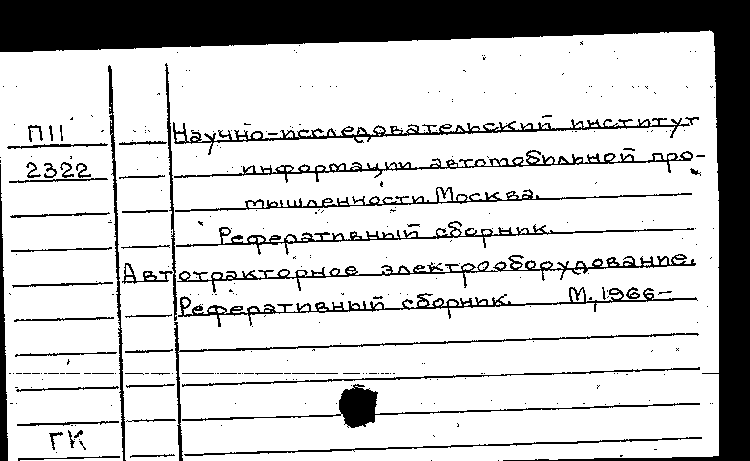 П11 Научно-исследовательский институт
2322 информации автомобильной про-
мышленности. Москва.
Реферативный сборник.
Автотракторное электрооборудование.
Реферативный сборник. М., 1966-
ГК